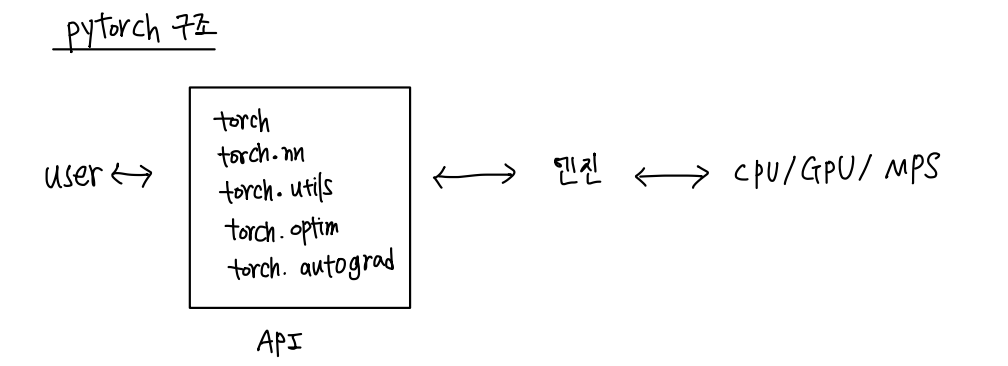 pytorch 구조
user
torch
torch.nn
torch.utils
torch.optim
torch.autograd
API
엔진
CPU/GPU/MPS